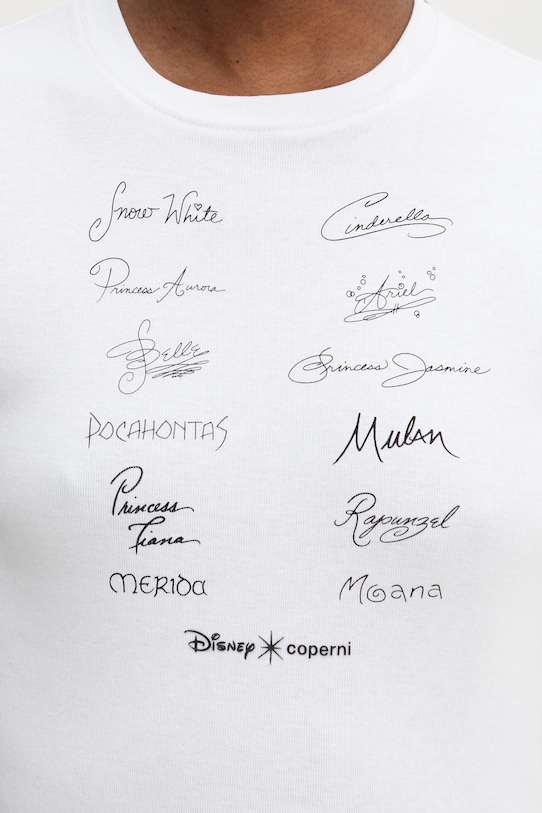 Snow White Cinderella
Princess Aurora Ariel
Belle Princess Jasmine
POCAHONTAS Mulan
Princess
Tiana
Rapunzel
MERIDA Moana
Disney coperni